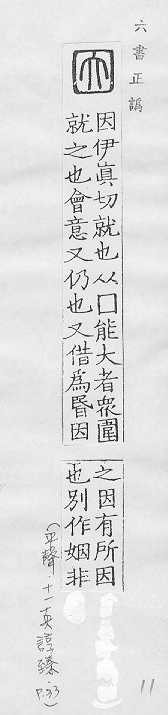 六書正譌
因
因伊眞切就也从囗能大者衆圍
就之也會意又仍也又借爲昬因
之因有所因
也別作姻非
(平聲.十一真諄臻.
P.33)
11